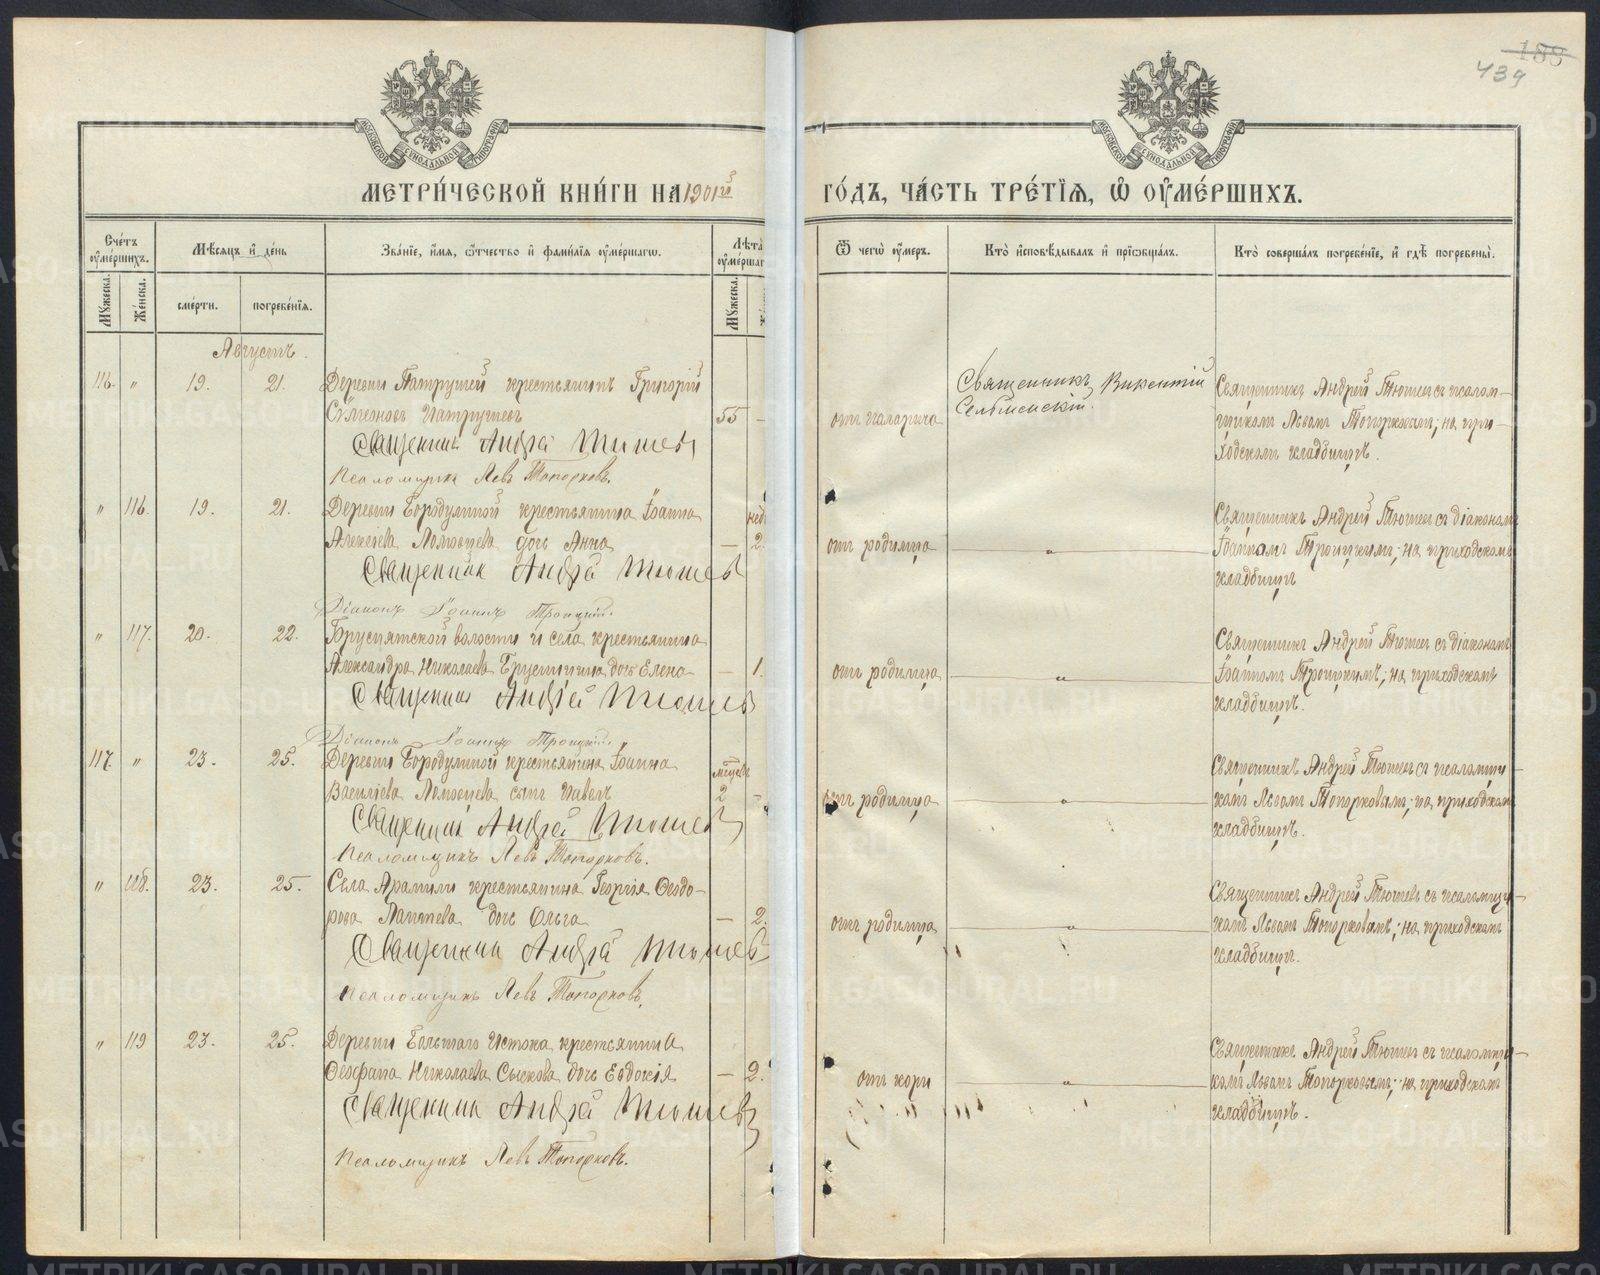 188
439
МОСКОВСКОЙ СѴНОДАЛЬНОЙ ТИПОГРАФІИ
МОСКОВСКОЙ СѴНОДАЛЬНОЙ ТИПОГРАФІИ
МЕТРИ́ЧЕСКОЙ КНИ́ГИ НА 1901й
ГО́ДЪ, ЧА́СТЬ ТРЕ́ТЇѦ, Ѽ ОУ҆МЕ́РШИХЪ.
Сче́тъ оу҆ме́ршихъ.
Мꙋжеска.
Же́нска.
Мѣ́сѧцъ и҆ де́нь
сме́рти.
погребе́нїѧ.
Зва́нїе, и҆́мѧ, ѻ҆́тчество и҆ фами́лїѧ оу҆ме́ршагѡ.
Лѣ́та
оу҆ме́ршаг
Мꙋжеска.
Ѿ чегѡ̀ оу҆́меръ.
Кто̀ и҆сповѣ́дывалъ и҆ прїѡбща́лъ.
Кто̀ соверша́лъ погребе́нїе, и҆ гдѣ̀ погребены̀.
Августъ.
116. " 19. 21. Деревни Патрушей крестьянинъ Григорій
Сѷмеоновъ Патрушевъ 55 –
Священникъ Андрей Тюшевъ
Псаломщикъ Левъ Топорковъ.
Священникъ Викентій
Сельменскій.
Священникъ Андрей Тюшевъ съ псалом-
щикомъ Львомъ Топорковымъ; на при-
ходскомъ кладбищѣ.
" 116. 19. 21. Деревни Бородулиной крестьянина Іоанна нед.
Алексіева Ломовцева дочь Анна – 2.
Священникъ Андрей Тюшевъ
Діаконъ Іоаннъ Троицкій.
отъ родимца "
Священникъ Андрей Тюшевъ съ діакономъ
Іоанномъ Троицкимъ; на приходскомъ
кладбищѣ
" 117. 20. 22. Бруснятской волости и села крестьянина
Александра Николаева Брусницина дочь Елена – 1.
Священникъ Андрей Тюшевъ
Діаконъ Іоаннъ Троицкій.
отъ родимца "
Священникъ Андрей Тюшевъ съ діакономъ
Іоанномъ Троицкимъ; на приходскомъ
кладбищѣ.
117. " 23. 25. Деревни Бородулиной крестьянина Іоанна мѣсец.
Василіева Ломовцева сынъ Павелъ 2 –
Священникъ Андрей Тюшевъ
Псаломщикъ Левъ Топорковъ.
отъ родимца "
Священникъ Андрей Тюшевъ съ псаломщи-
комъ Львомъ Топорковымъ; на приходскомъ
кладбищѣ.
" 118. 23. 25. Села Арамили крестьянина Георгія Ѳеодо-
рова Лаптева дочь Ольга – 2.
Священникъ Андрей Тюшевъ
Псаломщикъ Левъ Топорковъ.
отъ родимца "
Священникъ Андрей Тюшевъ съ псаломщи-
комъ Львомъ Топорковымъ; на приходскомъ
кладбищѣ.
" 119 23. 25. Деревни Большаго Истока крестьянина
Ѳеофана Николаева Сыскова дочь Евдокія – 2.
Священникъ Андрей Тюшевъ
Псаломщикъ Левъ Топорковъ.
отъ кори "
Священникъ Андрей Тюшевъ съ псаломщи-
комъ Львомъ Топорковымъ; на приходскомъ
кладбищѣ.
METRIKI.GASO-URAL.RU